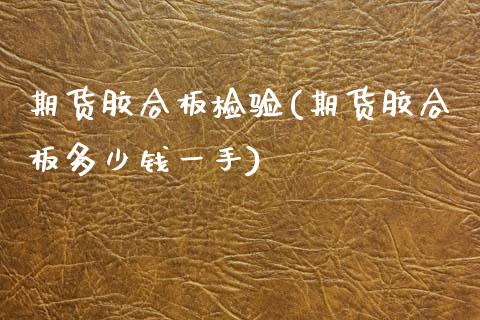 期货胶合板检验(期货胶合
板多少钱一手)